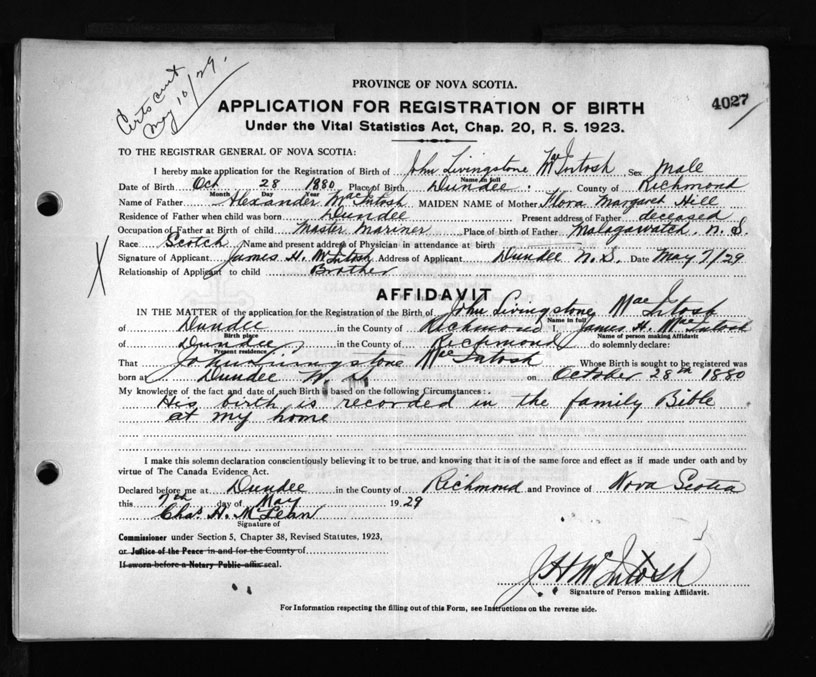 Certs cut
May 10/29.
PROVINCE OF NOVA SCOTIA.
APPLICATION FOR REGISTRATION OF BIRTH
4027
Under the Vital Statistics Act, Chap. 20, R. S. 1923.
TO THE REGISTRAR GENERAL OF NOVA SCOTIA:
I hereby make application for the Registration of Birth of John Livingstone MacIntosh Sex Male
Name in full
Date of Birth Oct 28 1880 Place of Birth Dundee County of Richmond
Month Day Year
Name of Father Alexander MacIntosh MAIDEN NAME of Mother Flora Margaret Hill
Residence of Father when child was born Dundee Present address of Father deceased
Occupation of Father at Birth of child Master Mariner Place of birth of Father Malagawatch, N. S.
Race Scotch Name and present address of Physician in attendance at birth
X
Signature of Applicant James H. McIntosh Address of Applicant Dundee N.S. Date May 7/29
Relationship of Applicant to child Brother
AFFIDAVIT
IN THE MATTER of the application for the Registration of the Birth of John Livingstone MacIntosh
Name in full
of Dundee in the County of Richmond I, James H. MacIntosh
Birth place Name of person making Affidavit
of Dundee in the County of Richmond do solemnly declare:
Present residence
That John Livingstone MacIntosh Whose Birth is sought to be registered was
born at Dundee N S on October 28th 1880
My knowledge of the fact and date of such Birth is based on the following Circumstances:
His birth is recorded in the family Bible
at my home
I make this solemn declaration conscientiously believing it to be true, and knowing that it is of the same force and effect as if made under oath and by
virtue of The Canada Evidence Act.
Declared before me at Dundee in the County of Richmond and Province of Nova Scotia
this 7th day of May 19 29
Chas H. McLean
Signature of
Commissioner under Section 5, Chapter 38, Revised Statutes, 1923,
or Justice of the Peace in and for the County of
If sworn before a Notary Public affix seal.
J H McIntosh
Signature of Person making Affidavit.
For Information respecting the filling out of this Form, see Instructions on the reverse side.